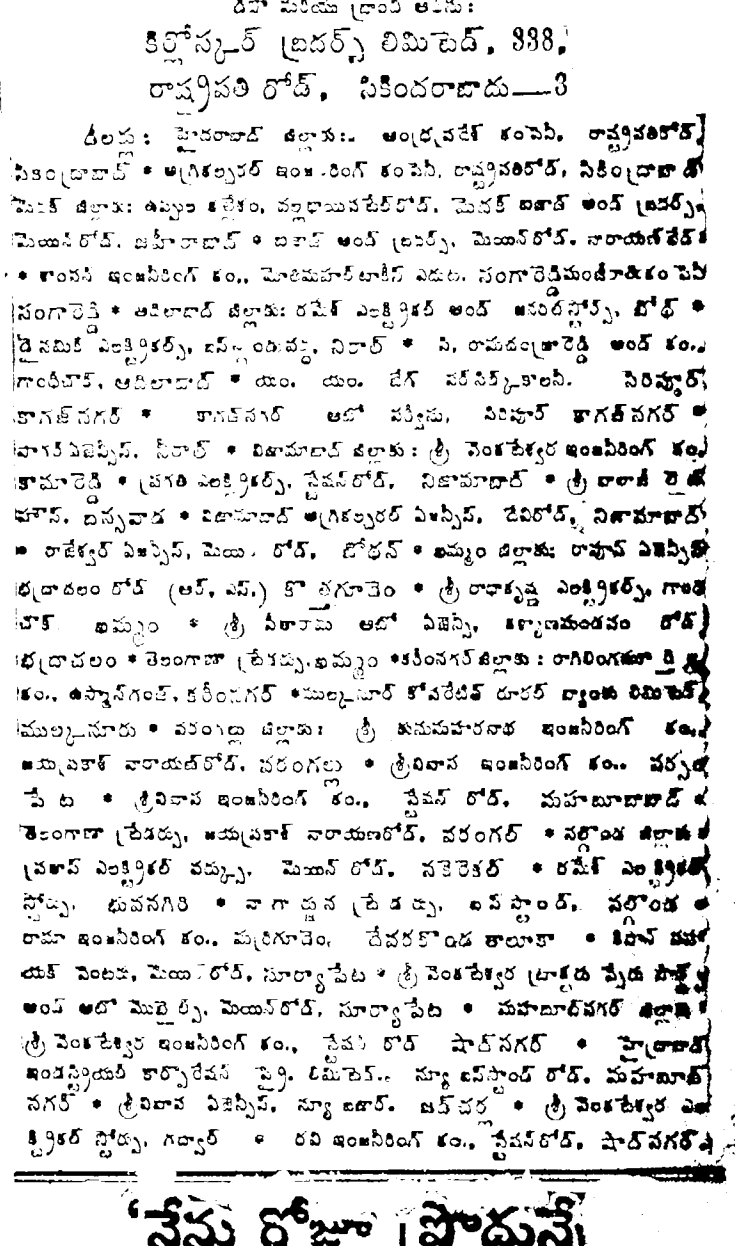 డిపో మరియు బ్రాంచి ఆఫీసు:
కిర్లోస్కర్ బ్రదర్స్ లిమిటెడ్, 338,
రాష్ట్రపతి రోడ్, సికిందరాబాదు—3
డీలర్లు: హైదరాబాద్ జిల్లాకు:. ఆంధ్రప్రదేశ్ కంపెనీ, రాష్ట్రపతిరోడ్,
సికింద్రాబాద్ * అగ్రికల్చరల్ ఇంజనీరింగ్ కంపెనీ, రాష్ట్రపతిరోడ్, సికింద్రాబాద్
మెదక్ జిల్లాకు: ఉప్పల కల్లేశం, వల్లభాయిపటేల్‌రోడ్, మెదక్ ఐజాద్ అండ్ బ్రదర్స్,
మెయిన్‌రోడ్, జహీరాబాద్ * అండ్ బ్రదర్స్, మెయిన్‌రోడ్, నారాయణ్‌ఖేడ్
* ఇంజనీరింగ్ కం., ఎదుట, సంగారెడ్డి
సంగారెడ్డి * ఆదిలాబాద్ జిల్లాకు: రమేశ్ ఎలక్ట్రికల్ అండ్ జనరల్‌స్టోర్స్, బోథ్ *
డైనమిక్ ఎలక్ట్రికల్స్, నిర్మల్ * సి. అండ్ కం.,
గాంధీచౌక్, ఆదిలాబాద్ * యం. యం. బేగ్ సిరిపూర్,
కాగజ్‌నగర్ * కాగజ్‌నగర్ ఆటో సర్వీసు, సిరిపూర్ కాగజ్‌నగర్ *
ఏజెన్సీస్, నిర్మల్ * నిజామాబాద్ జిల్లాకు: శ్రీ వెంకటేశ్వర ఇంజనీరింగ్ కం,
కామారెడ్డి * ప్రగతి ఎలక్ట్రికల్స్, స్టేషన్‌రోడ్, నిజామాబాద్ * శ్రీ బాలాజీ
హౌస్, బాన్సవాడ * నిజామాబాద్ అగ్రికల్చరల్ ఏజన్సీస్, దేవిరోడ్, నిజామాబాద్
* రాజేశ్వర్ ఏజన్సీస్, మెయిన్ రోడ్, బోధన్ * ఖమ్మం జిల్లాకు: ఏజెన్సీస్
భద్రాచలం రోడ్ (ఆర్, ఎస్,) కొత్తగూడెం * శ్రీ రాధాకృష్ణ ఎలక్ట్రికల్స్, గాంధి
చౌక్ ఖమ్మం * శ్రీ సీతారామ ఆటో ఏజెన్సీ, కళ్యాణమండపం రోడ్,
భద్రాచలం * తెలంగాణా ట్రేడర్సు, ఖమ్మం * కరీంనగర్ జిల్లాకు:
కం., ఉస్మాన్‌గంజ్, కరీంనగర్ * ముల్కనూర్ కోపరేటివ్ రూరల్ బ్యాంకు లిమిటెడ్,
ముల్కనూరు * వరంగల్లు జిల్లాకు: శ్రీ ఇంజనీరింగ్ కం.,
జయప్రకాశ్ నారాయణ్‌రోడ్, వరంగల్లు * శ్రీనివాస ఇంజనీరింగ్ కం.. నర్సం
పేట * శ్రీనివాస ఇంజనీరింగ్ కం., స్టేషన్ రోడ్, మహబూబాబాద్ *
తెలంగాణా ట్రేడర్సు, జయప్రకాశ్ నారాయణరోడ్, వరంగల్ * నల్గొండ జిల్లాకు *
ప్రకాష్ ఎలక్ట్రికల్ వర్క్సు, మెయిన్ రోడ్, నకిరెకల్ * రమేశ్ ఎలక్ట్రికల్
స్టోర్సు, భువనగిరి * నాగార్జున ట్రేడర్సు, బస్ స్టాండ్, నల్గొండ *
రామా ఇంజనీరింగ్ కం., మర్రిగూడెం, దేవరకొండ తాలూకా * కిసాన్ సహా
యక్ సెంటర్, మెయిన్ రోడ్, సూర్యాపేట * శ్రీ వెంకటేశ్వర ట్రాక్టరు స్పేరు పార్ట్స్
అండ్ ఆటో మొబైల్స్, మెయిన్‌రోడ్, సూర్యాపేట * మహబూబ్‌నగర్ జిల్లాకు *
శ్రీ వెంకటేశ్వర ఇంజనీరింగ్ కం., స్టేషన్ రోడ్ షాద్‌నగర్ * హైద్రాబాద్
ఇండస్ట్రియల్ కార్పొరేషన్ ప్రై. లిమిటెడ్., న్యూ బస్‌స్టాండ్ రోడ్, మహబూబ్
నగర్ * శ్రీనివాస ఏజెన్సీస్, న్యూ బజార్. జడ్‌చర్ల * శ్రీ వెంకటేశ్వర ఎల
క్ట్రికల్ స్టోర్సు, గద్వాల్ * రవి ఇంజనీరింగ్ కం., స్టేషన్‌రోడ్, షాద్‌నగర్
'నేను రోజూ ప్రొద్దున్నే